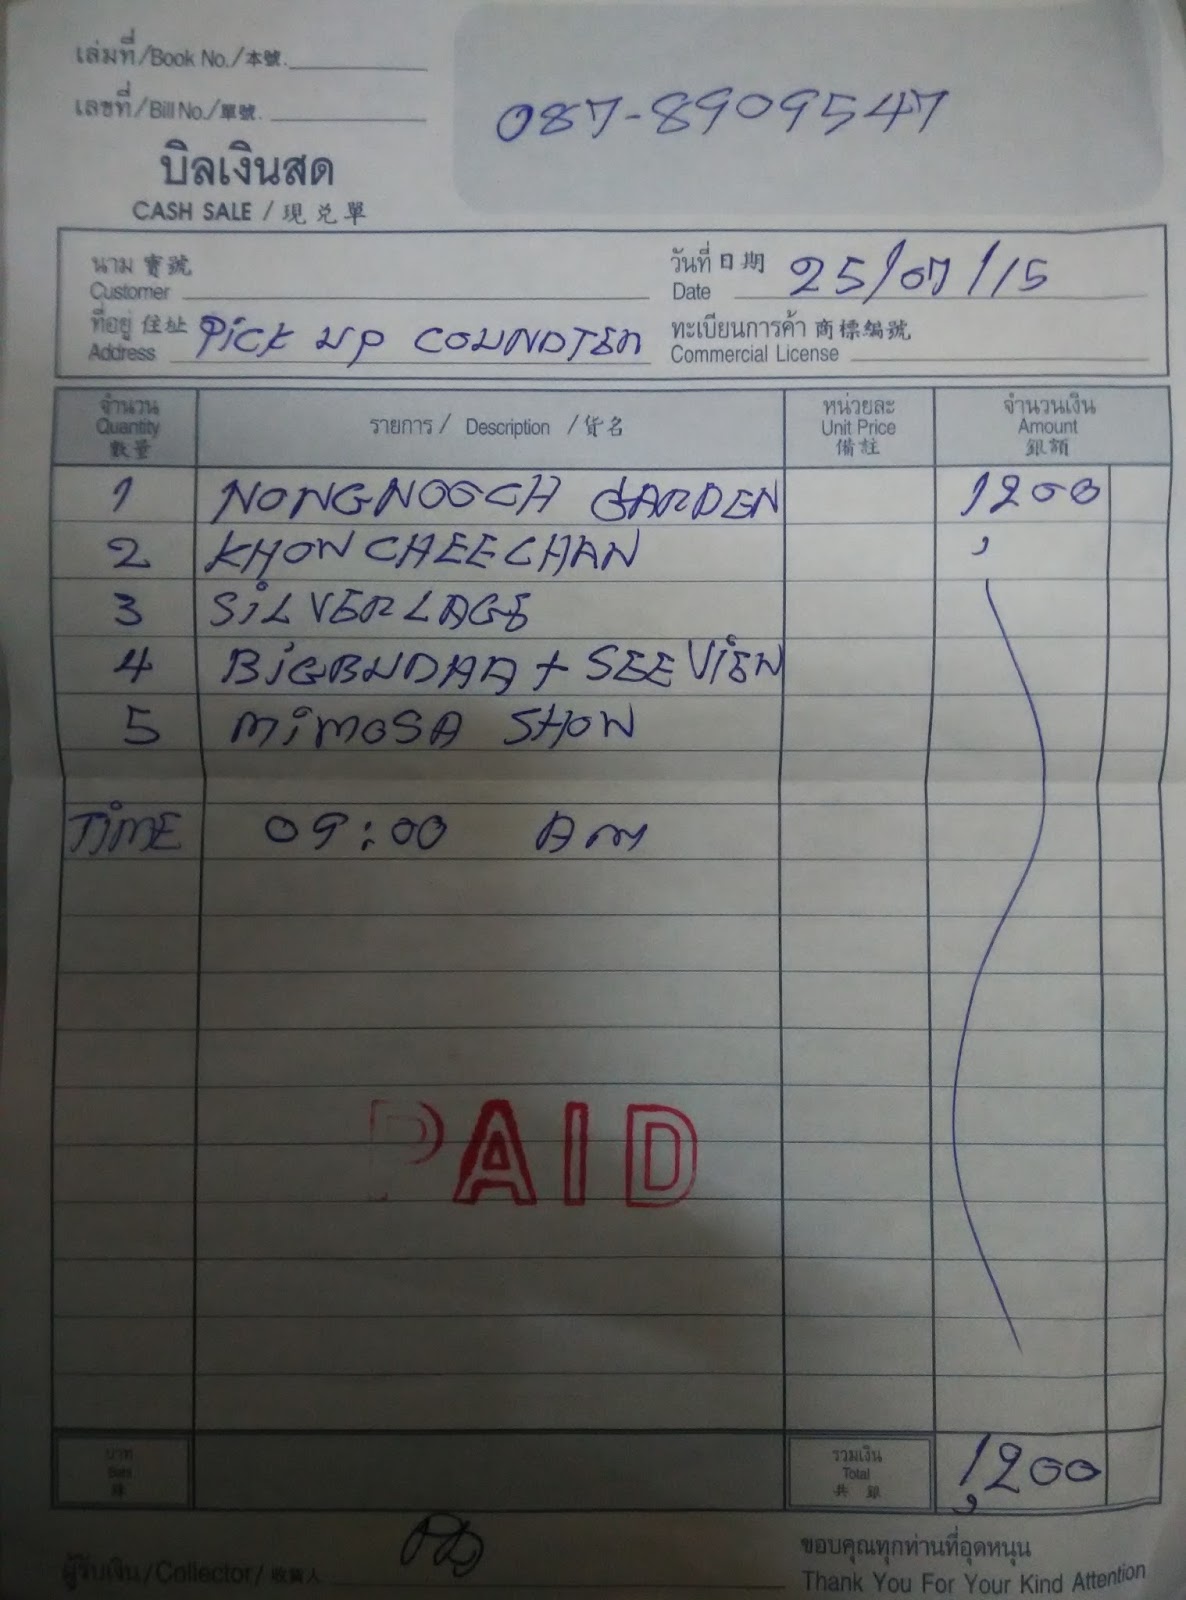 เล่มที่/Book No./本號.
087-8909547
เลขที่/Bill No./單號.
บิลเงินสด
CASH SALE / 現兑單
นาม 寶號
Customer
วันที่ 日期 25/07/15
Date
ที่อยู่ 住址 PiCK UP COUNDTER
Address
ทะเบียนการค้า 商標編號
Commercial License
จำนวน รายการ / Description / 貨名 หน่วยละ จำนวนเงิน
Quantity Unit Price Amount
數量 備註 銀額
1 NONGNOOCH GARDEN 1200
2 KHOW CHEECHAN
3 SiLVERLAGE
4 BiGBUDAA + SEE ViEW
5 MiMOSA SHOW
TiME 09:00 AM
PAID
บาท รวมเงิน 1,200
Bats Total
銖 共 銀
ผู้รับเงิน/Collector/收貨人
ขอบคุณทุกท่านที่อุดหนุน
Thank You For Your Kind Attention